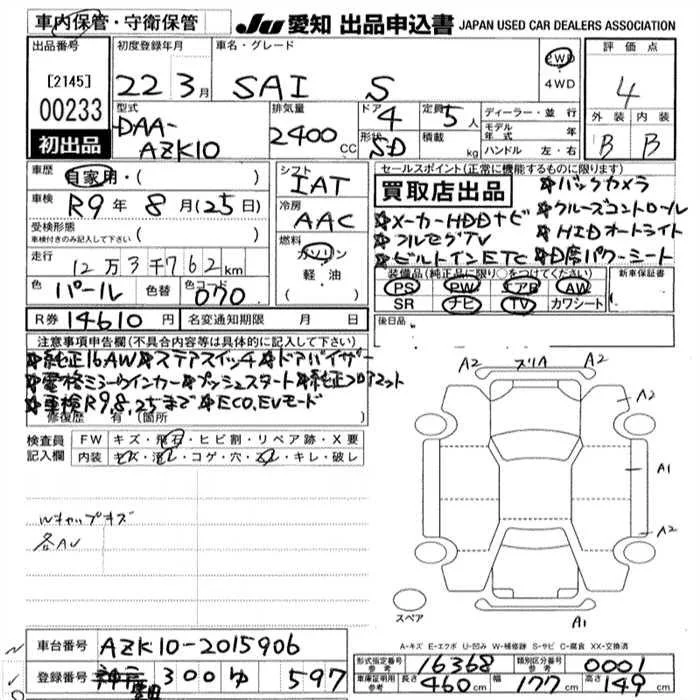 車内保管・守衛保管
JU 愛知 出品申込書 JAPAN USED CAR DEALERS ASSOCIATION
出品番号
[2145]
00233
初出品
初度登録年月
22 3月
車名・グレード
SAI S
2WD
4WD
評価点
4
外装 内装
B B
型式
DAA-
AZK10
排気量
2400 CC
ドア 4
形状 SD
定員 5 人
積載 kg
ディーラー・並行
モデル年式 年
ハンドル 左・右
車歴 自家用・( )
車検 R9年 8月(25日)
受検形態
車検付きのみ記入して下さい ( )
走行 12万3千762km
色 パール 色替 色コード 070
R券 14610円 名変通知期限 月 日
シフト IAT
冷房 AAC
燃料 ガソリン
軽・油
セールスポイント(正常に機能するものに限ります)
買取店出品
★バックカメラ
★メーカーHDDナビ ★クルーズコントロール
★フルセグTV ★HIDオートライト
★ビルトインETC ★D席パワーシート
装備品(純正品に限り○をつけてください) 新車保証書
PS PW エアB AW
SR ナビ TV カワシート
後日品
注意事項申告欄(不具合内容等は具体的に記入して下さい)
★純正16AW★ステアスイッチ★ドアバイザー
★電格ミラーウインカー★プッシュスタート★純正フロアマット
★車検R9.8.25まで★ECO,EVモード
修復歴 有(箇所
検査員
記入欄
FW キズ・飛石・ヒビ割・リペア跡・X要
内装 キズ・汚レ・コゲ・穴・スレ・キレ・破レ
Wキャップキズ
各AU
A2 スリA A2
A2
A1
A2
A1
スペア
A-キズ E-エクボ U-凹み W-補修跡 S-サビ C-腐食 XX-交換済
車台番号 AZK10-2015906
登録番号 300 ゆ 597
形式指定番号 参考 16368 類別区分番号 参考 0001
車庫証明用 参考 長さ 460cm 幅 177cm 高さ 149cm